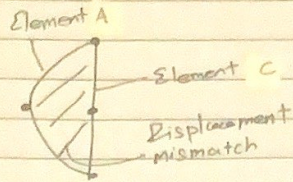 Element A
Element C
Displacement
mismatch